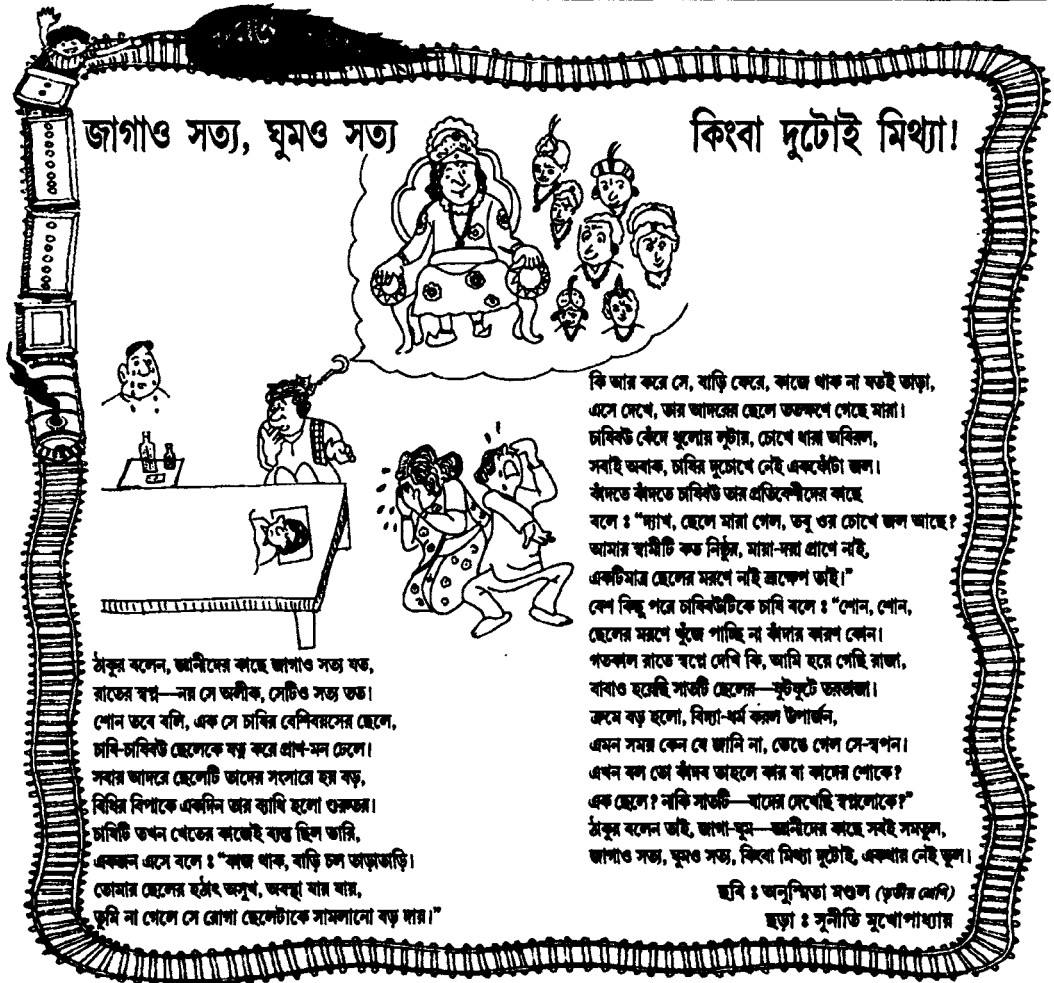 জাগাও সত্য, ঘুমও সত্য কিংবা দুটোই মিথ্যা!
ঠাকুর বলেন, জ্ঞানীদের কাছে জাগাও সত্য যত,
রাতের স্বপ্ন—নয় সে অলীক, সেটিও সত্য তত।
শোন তবে বলি, এক সে চাষির বেশিবয়সের ছেলে,
চাষি-চাষিবউ ছেলেকে যত্ন করে প্রাণ-মন ঢেলে।
সবার আদরে ছেলেটি তাদের সংসারে হয় বড়,
বিধির বিপাকে একদিন তার ব্যাধি হলো গুরুতর।
চাষিটি তখন খেতের কাজেই ব্যস্ত ছিল ভারি,
একজন এসে বলে ঃ “কাজ থাক, বাড়ি চল তাড়াতাড়ি।
তোমার ছেলের হঠাৎ অসুখ, অবস্থা যায় যায়,
তুমি না গেলে সে রোগা ছেলেটাকে সামলানো বড় দায়।”
কি আর করে সে, বাড়ি ফেরে, কাজে থাক না যতই তাড়া,
এসে দেখে, তার আদরের ছেলে ততক্ষণে গেছে মারা।
চাষিবউ কেঁদে ধুলোয় লুটায়, চোখে ধারা অবিরল,
সবাই অবাক, চাষির দুচোখে নেই একফোঁটা জল।
কাঁদতে কাঁদতে চাষিবউ তার প্রতিবেশীদের কাছে
বলে ঃ “দ্যাখ, ছেলে মারা গেল, তবু ওর চোখে জল আছে?
আমার স্বামীটি কত নিষ্ঠুর, মায়া-দয়া প্রাণে নাই,
একটিমাত্র ছেলের মরণে নাই ভ্রূক্ষেপ তাই।”
বেশ কিছু পরে চাষিবউটিকে চাষি বলে ঃ “শোন, শোন,
ছেলের মরণে খুঁজে পাচ্ছি না কাঁদার কারণ কোন।
গতকাল রাতে স্বপ্নে দেখি কি, আমি হয়ে গেছি রাজা,
বাবাও হয়েছি সাতটি ছেলের—ফুটফুটে তরতাজা।
ক্রমে বড় হলো, বিদ্যা-ধর্ম করল উপার্জন,
এমন সময় কেন যে জানি না, ভেঙে গেল সে-স্বপন।
এখন বল তো কাঁদব তাহলে কার বা কাদের শোকে?
এক ছেলে? নাকি সাতটি—যাদের দেখেছি স্বপ্নলোকে?”
ঠাকুর বলেন তাই, জাগা-ঘুম—জ্ঞানীদের কাছে সবই সমতুল,
জাগাও সত্য, ঘুমও সত্য, কিংবা মিথ্যা দুটোই, একথার নেই ভুল।
ছবি ঃ অনুস্মিতা মণ্ডল (তৃতীয় শ্রেণি)
ছড়া ঃ সুনীতি মুখোপাধ্যায়